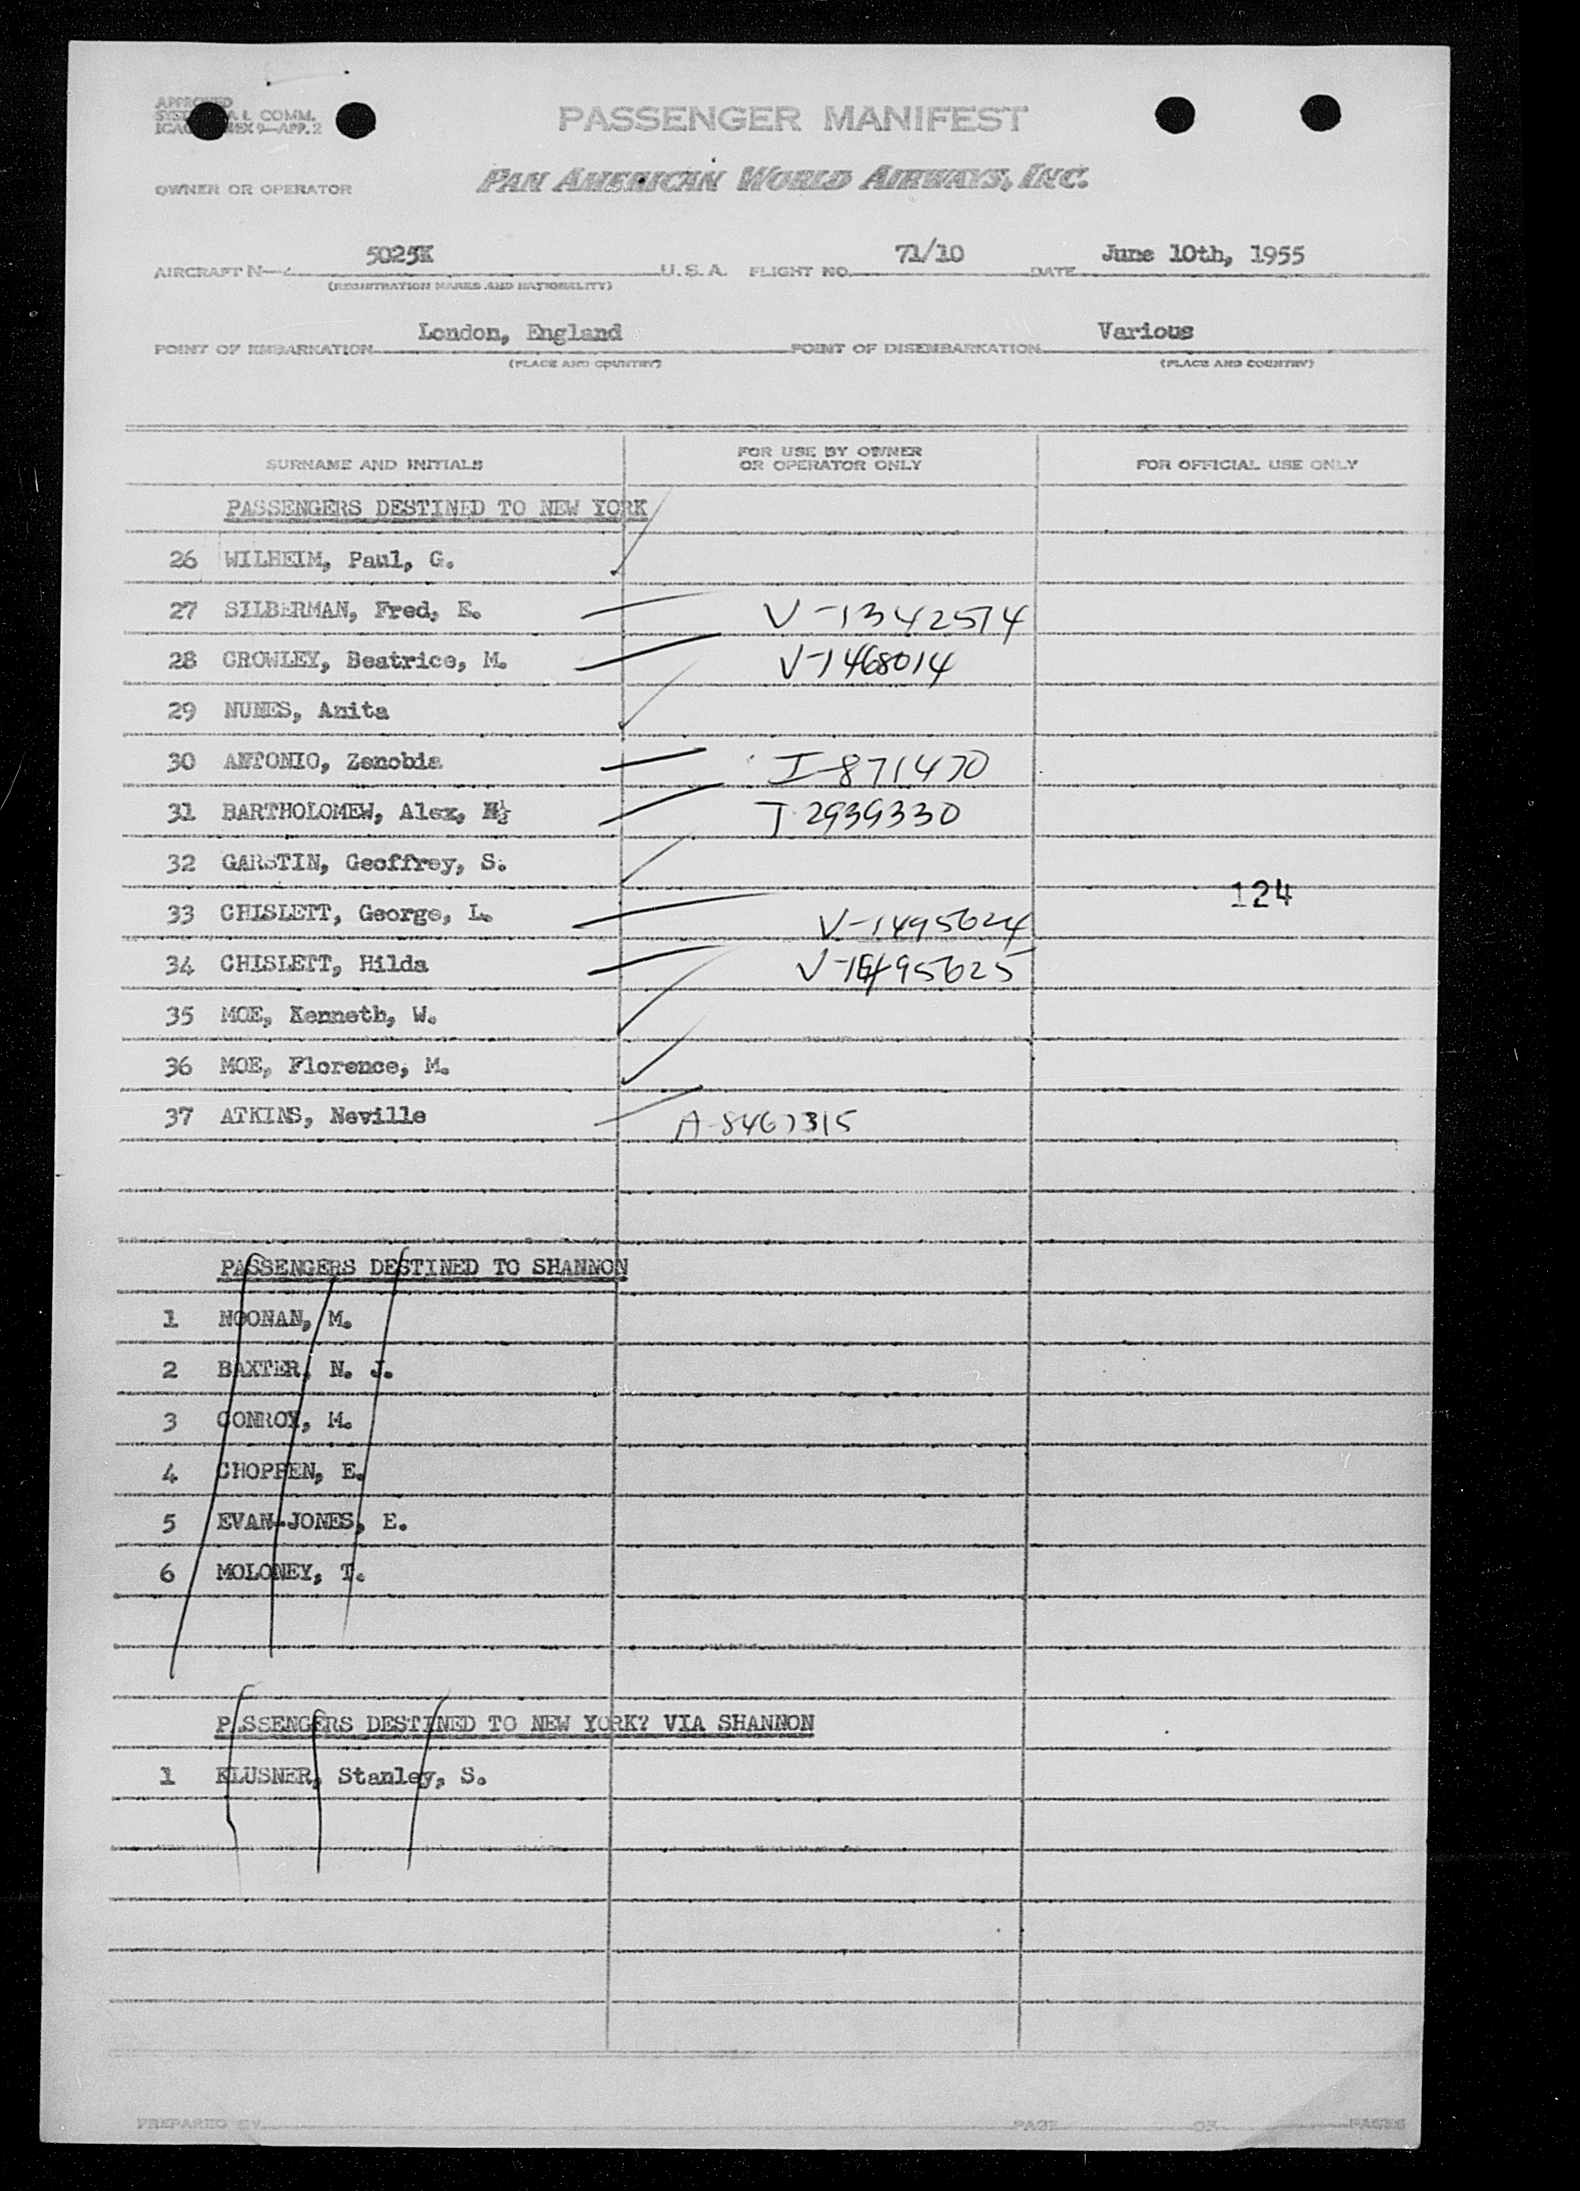 APPROVED
COMM.
9—APP. 2
PASSENGER MANIFEST
OWNER OR OPERATOR
PAN AMERICAN WORLD AIRWAYS, INC.
AIRCRAFT N— 5025K U.S.A. FLIGHT NO. 71/10 DATE June 10th, 1955
(REGISTRATION MARKS AND NATIONALITY)
POINT OF EMBARKATION London, England POINT OF DISEMBARKATION Various
(PLACE AND COUNTRY) (PLACE AND COUNTRY)
SURNAME AND INITIALS FOR USE BY OWNER OR OPERATOR ONLY FOR OFFICIAL USE ONLY
PASSENGERS DESTINED TO NEW YORK
26 WILHEIM, Paul, G.
27 SILBERMAN, Fred, E. V-1342574
28 CROWLEY, Beatrice, M. V-1468014
29 NUNES, Anita
30 ANTONIO, Zenobia I-871470
31 BARTHOLOMEW, Alex, 2939330
32 GARSTIN, Geoffrey, S.
124
33 CHISLETT, George, L. V-1495624
34 CHISLETT, Hilda V-1495625
35 MOE, Kenneth, W.
36 MOE, Florence, M.
37 ATKINS, Neville A-8467315
PASSENGERS DESTINED TO SHANNON
1 NOONAN, M.
2 BAXTER, N. J.
3 CONROY, M.
4 CHOPPEN, E.
5 EVAN-JONES, E.
6 MOLONEY, T.
PASSENGERS DESTINED TO NEW YORK? VIA SHANNON
1 KLUSNER, Stanley, S.
PREPARED BY PAGE OF PAGES